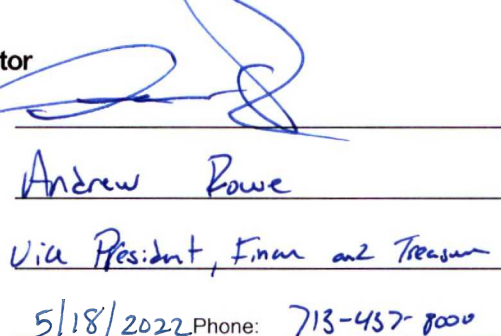 tor
Andrew Rowe
Vice President, Finan and Treasurer
5/18/2022 Phone: 713-457-8000